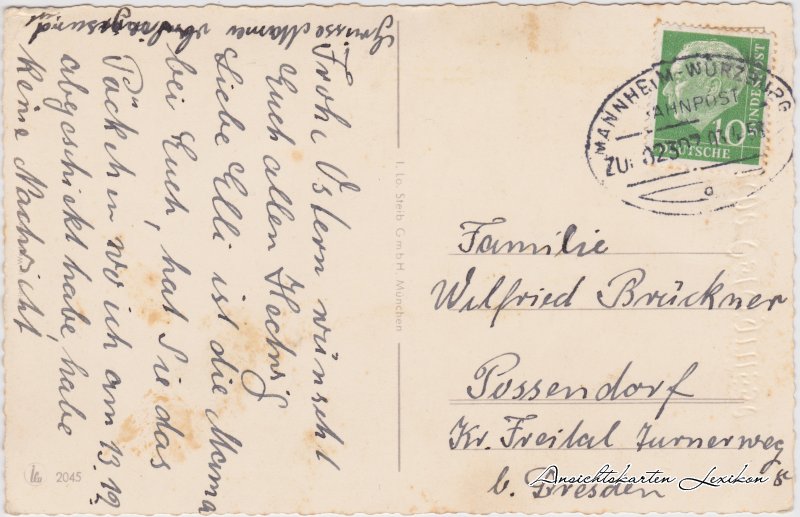 Frohe Ostern wünscht
Euch allen Hedwig
Liebe Elli ist die Mama
bei Euch, hat Sie das
Päckchen wo ich am 13. 12
abgeschickt habe, habe
keine Nachricht,
Grüsse Mama
I. Lo. Steib GmbH, München
2045
MANNHEIM-WÜRZBURG
BAHNPOST
ZUG 02307
10
DEUTSCHE
BUNDESPOST
Familie
Wilfried Brückner
Possendorf
Kr. Freital Turnerweg
b. Dresden
Ansichtskarten Lexikon